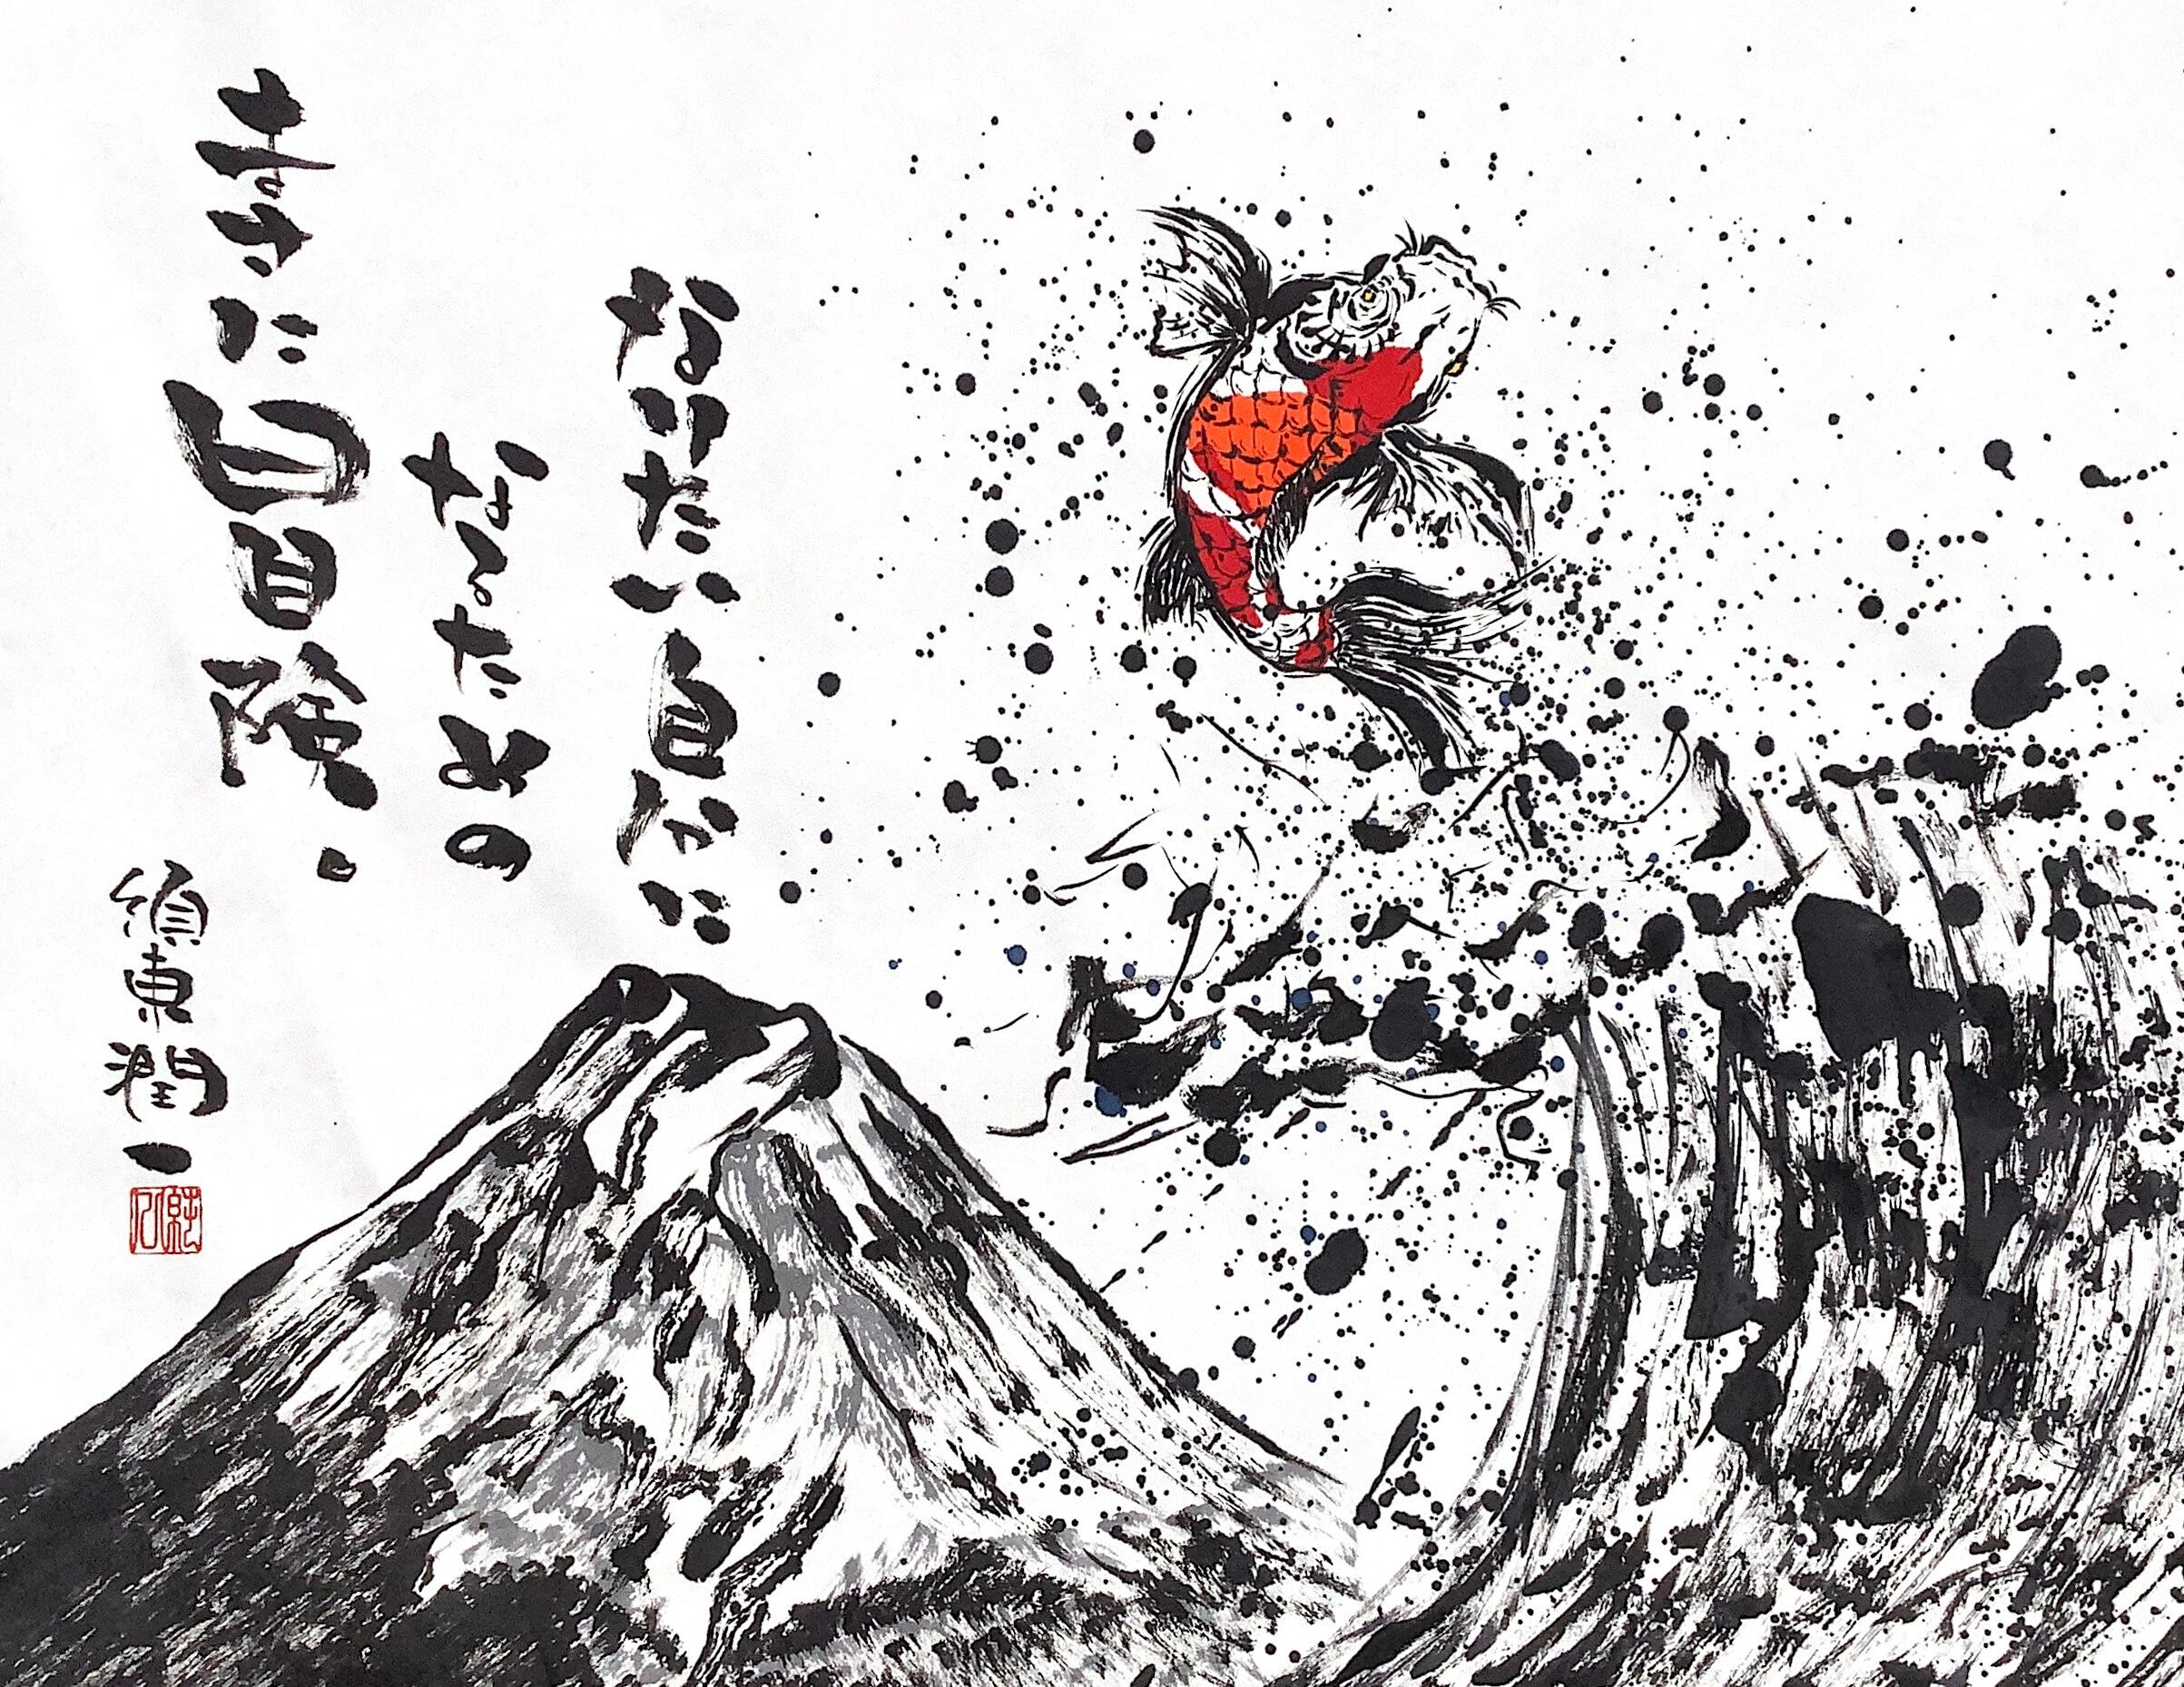 なりたい自分に
なるための
まさに冒険。
須東潤一